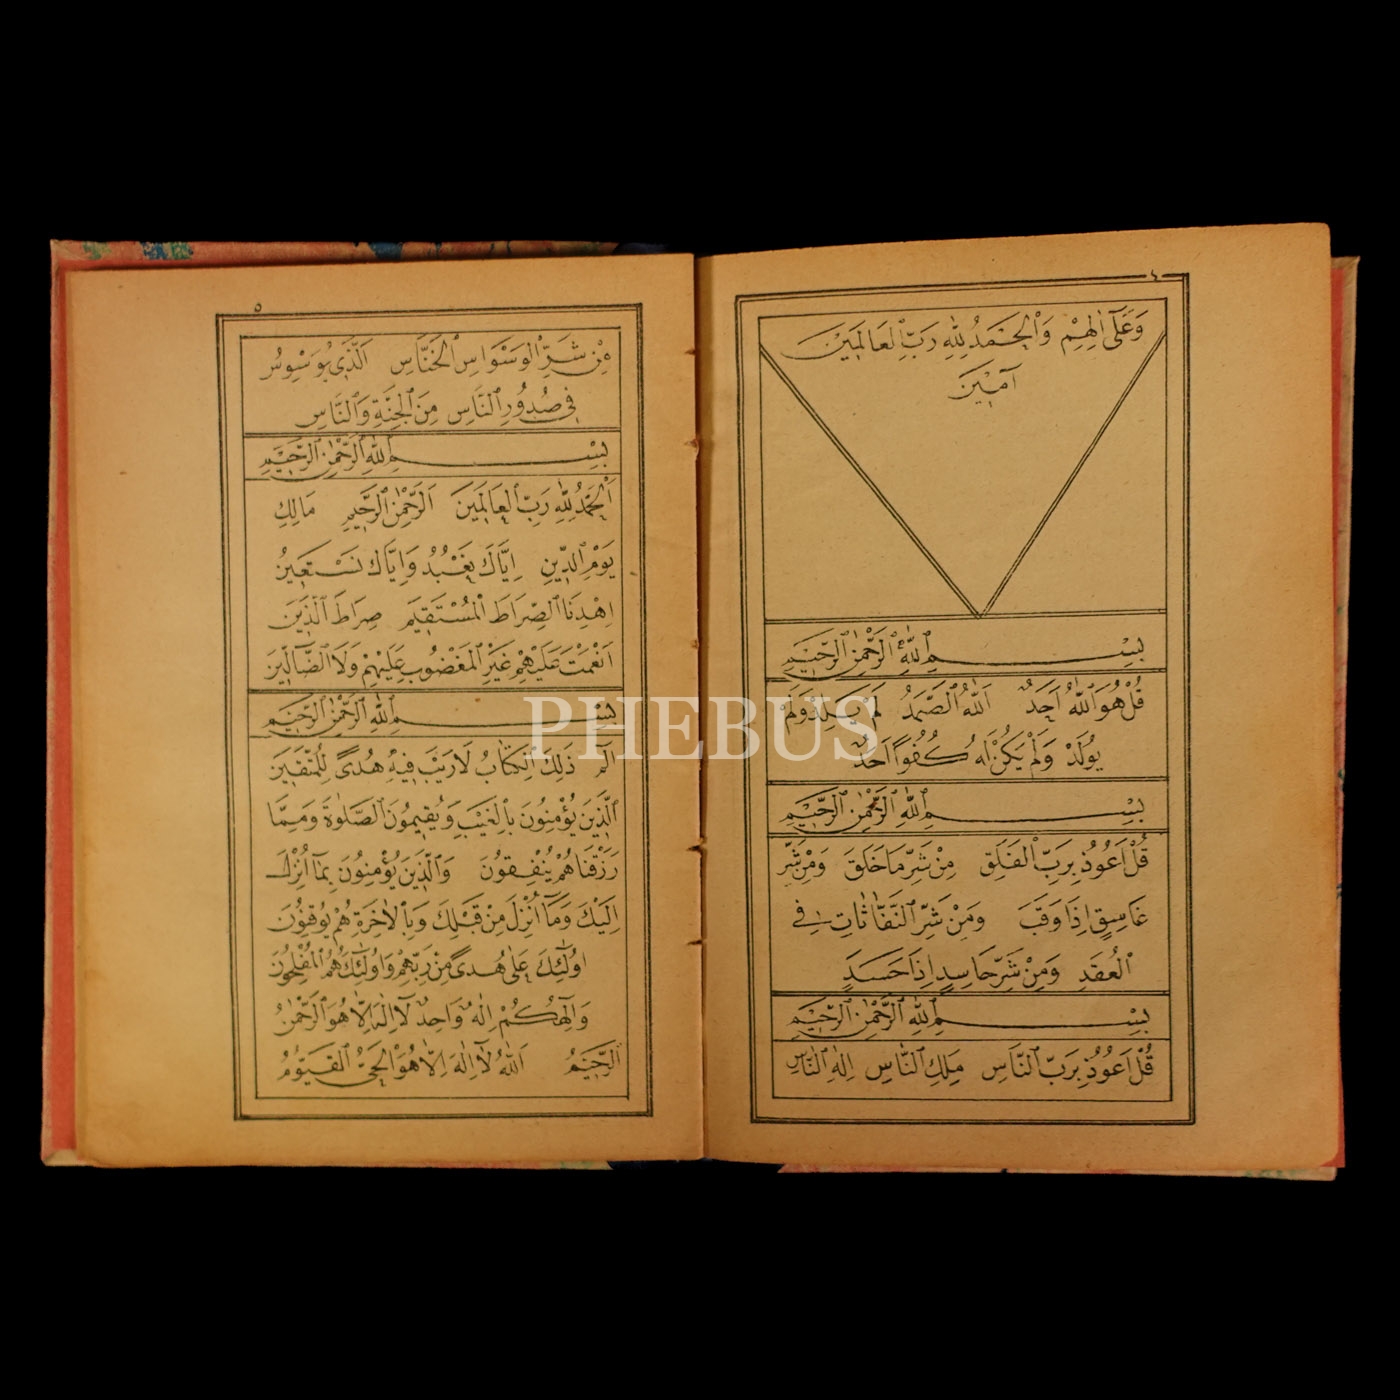 ٤
وَعَلٰٓى اٰلِهِمْ وَالْحَمْدُ لِلّٰهِ رَبِّ الْعَالَمِينَ
اٰمِينَ
بِسْمِ اللّٰهِ الرَّحْمٰنِ الرَّحِيمِ
قُلْ هُوَ اللّٰهُ اَحَدٌ اَللّٰهُ الصَّمَدُ لَمْ يَلِدْ وَلَمْ
يُولَدْ وَلَمْ يَكُنْ لَهُ كُفُوًا اَحَدٌ
بِسْمِ اللّٰهِ الرَّحْمٰنِ الرَّحِيمِ
قُلْ اَعُوذُ بِرَبِّ الْفَلَقِ مِنْ شَرِّ مَا خَلَقَ وَمِنْ شَرِّ
غَاسِقٍ اِذَا وَقَبَ وَمِنْ شَرِّ النَّفَّاثَاتِ فِى
الْعُقَدِ وَمِنْ شَرِّ حَاسِدٍ اِذَا حَسَدَ
بِسْمِ اللّٰهِ الرَّحْمٰنِ الرَّحِيمِ
قُلْ اَعُوذُ بِرَبِّ النَّاسِ مَلِكِ النَّاسِ اِلٰهِ النَّاسِ
٥
مِنْ شَرِّ الْوَسْوَاسِ الْخَنَّاسِ اَلَّذِى يُوَسْوِسُ
فِى صُدُورِ النَّاسِ مِنَ الْجِنَّةِ وَالنَّاسِ
بِسْمِ اللّٰهِ الرَّحْمٰنِ الرَّحِيمِ
اَلْحَمْدُ لِلّٰهِ رَبِّ الْعَالَمِينَ اَلرَّحْمٰنِ الرَّحِيمِ مَالِكِ
يَوْمِ الدِّينِ اِيَّاكَ نَعْبُدُ وَاِيَّاكَ نَسْتَعِينُ
اِهْدِنَا الصِّرَاطَ الْمُسْتَقِيمَ صِرَاطَ الَّذِينَ
اَنْعَمْتَ عَلَيْهِمْ غَيْرِ الْمَغْضُوبِ عَلَيْهِمْ وَلَا الضَّٓالِّينَ
بِسْمِ اللّٰهِ الرَّحْمٰنِ الرَّحِيمِ
الٓمٓ ذٰلِكَ الْكِتَابُ لَا رَيْبَ فِيهِ هُدًى لِلْمُتَّقِينَ
اَلَّذِينَ يُؤْمِنُونَ بِالْغَيْبِ وَيُقِيمُونَ الصَّلٰوةَ وَمِمَّا
رَزَقْنَاهُمْ يُنْفِقُونَ وَالَّذِينَ يُؤْمِنُونَ بِمَٓا اُنْزِلَ
اِلَيْكَ وَمَٓا اُنْزِلَ مِنْ قَبْلِكَ وَبِالْاٰخِرَةِ هُمْ يُوقِنُونَ
اُولٰٓئِكَ عَلٰى هُدًى مِنْ رَبِّهِمْ وَاُولٰٓئِكَ هُمُ الْمُفْلِحُونَ
وَاِلٰهُكُمْ اِلٰهٌ وَاحِدٌ لَٓا اِلٰهَ اِلَّا هُوَ الرَّحْمٰنُ
الرَّحِيمُ اَللّٰهُ لَٓا اِلٰهَ اِلَّا هُوَ الْحَىُّ الْقَيُّومُ
PHEBUS